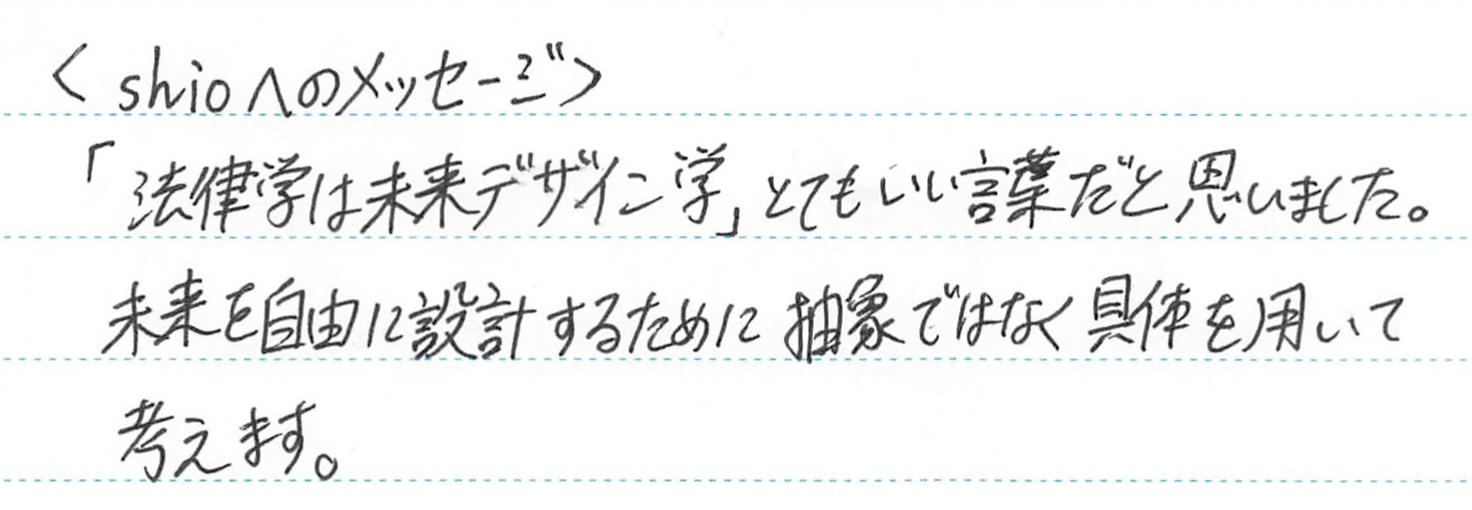 <shioへのメッセージ>
「法律学は未来デザイン学」とてもいい言葉だと思いました。
未来を自由に設計するために抽象ではなく具体を用いて
考えます。